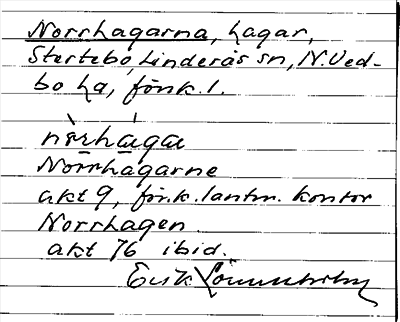 Norrhagarna, hagar,
Stertebo, Linderås sn, N. Ved-
bo hd, fönk. 1.
nὸrhágα
Norrhagarne
akt 9, fönk. lantm. kontor
Norrhagen
akt 76 ibid.
Erik